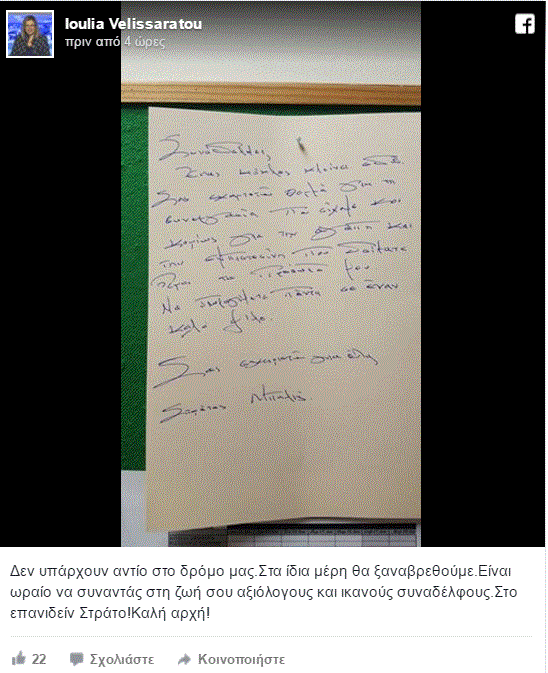 Ioulia Velissaratou
πριν από 4 ώρες
Συνάδελφοι,
Ένας κύκλος κλείνει εδώ
Σας ευχαριστώ θερμά για τη
συνεργασία που είχαμε και
κυρίως για την αγάπη και
την εμπιστοσύνη που δείξατε
προς το πρόσωπό μου
Να υπολογίζετε πάντα σε έναν
καλό φίλο.
Σας ευχαριστώ για όλα
Στράτος
Δεν υπάρχουν αντίο στο δρόμο μας.Στα ίδια μέρη θα ξαναβρεθούμε.Είναι
ωραίο να συναντάς στη ζωή σου αξιόλογους και ικανούς συναδέλφους.Στο
επανιδείν Στράτο!Καλή αρχή!
22 Σχολιάστε Κοινοποιήστε